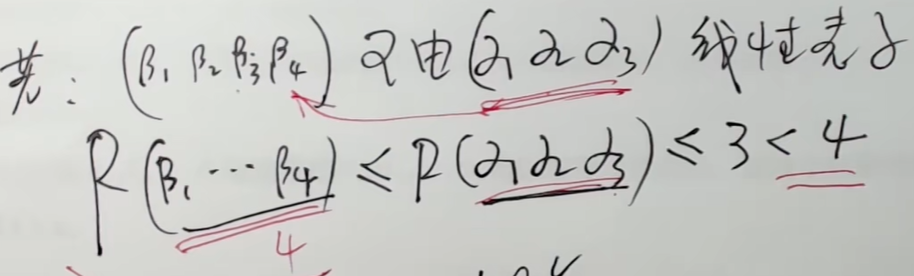 若: (β₁ β₂ β₃ β₄) 可由 (α₁ α₂ α₃) 线性表示
R(β₁ ⋯ β₄) ≤ R(α₁ α₂ α₃) ≤ 3 < 4
4